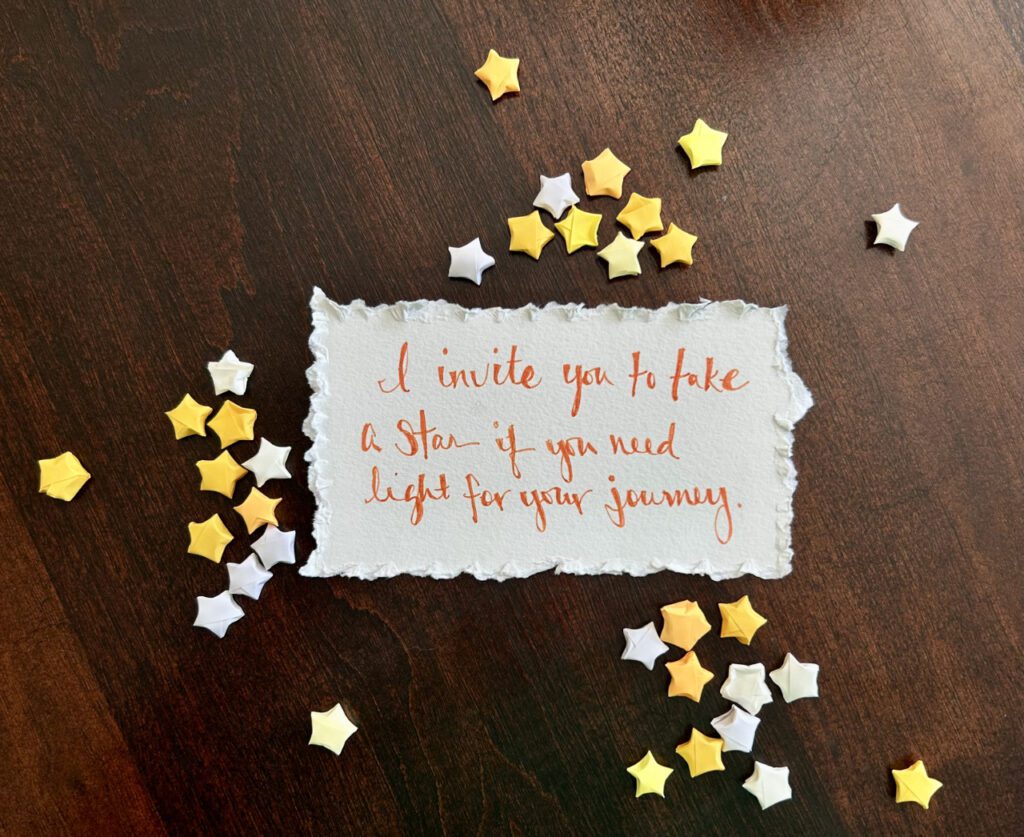 I invite you to take
a star if you need
light for your journey.